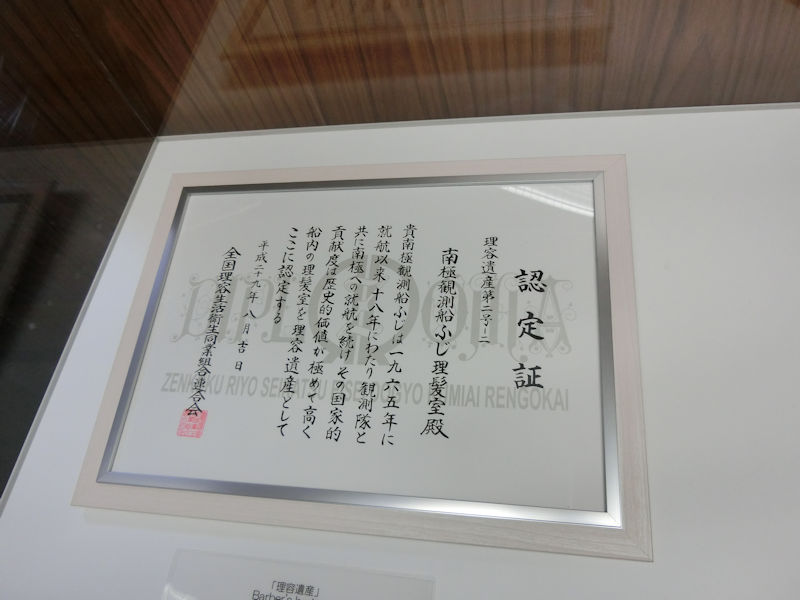 認定証
理容遺産第二号ー二
南極観測船ふじ理髪室殿
貴南極観測船ふじは一九六五年に
就航以来十八年にわたり観測隊と
共に南極への就航を続けその国家的
貢献度は歴史的価値が極めて高く
船内の理髪室を理容遺産として
ここに認定する
平成二十九年八月吉日
全国理容生活衛生同業組合連合会
DIPLOMA
ZENKOKU RIYO SEIKATSU EISEI DOGYO KUMIAI RENGOKAI
「理容遺産」